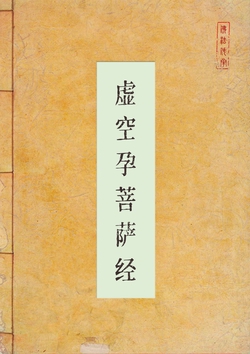 虚空孕菩萨经